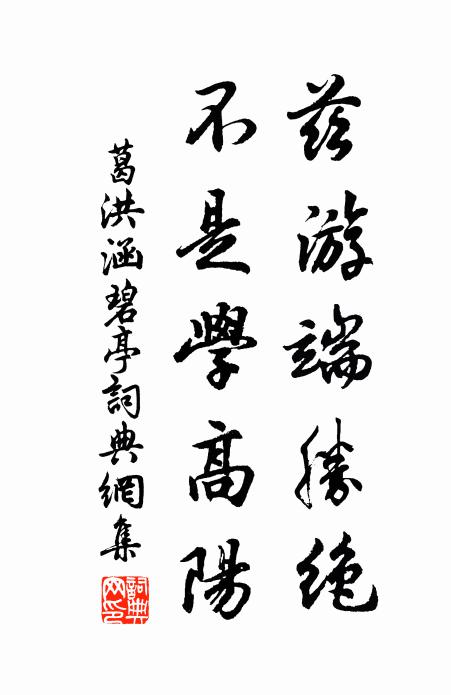 茲游端勝絶
不是學高陽
葛洪涵碧亭詞典網集
詞典網印